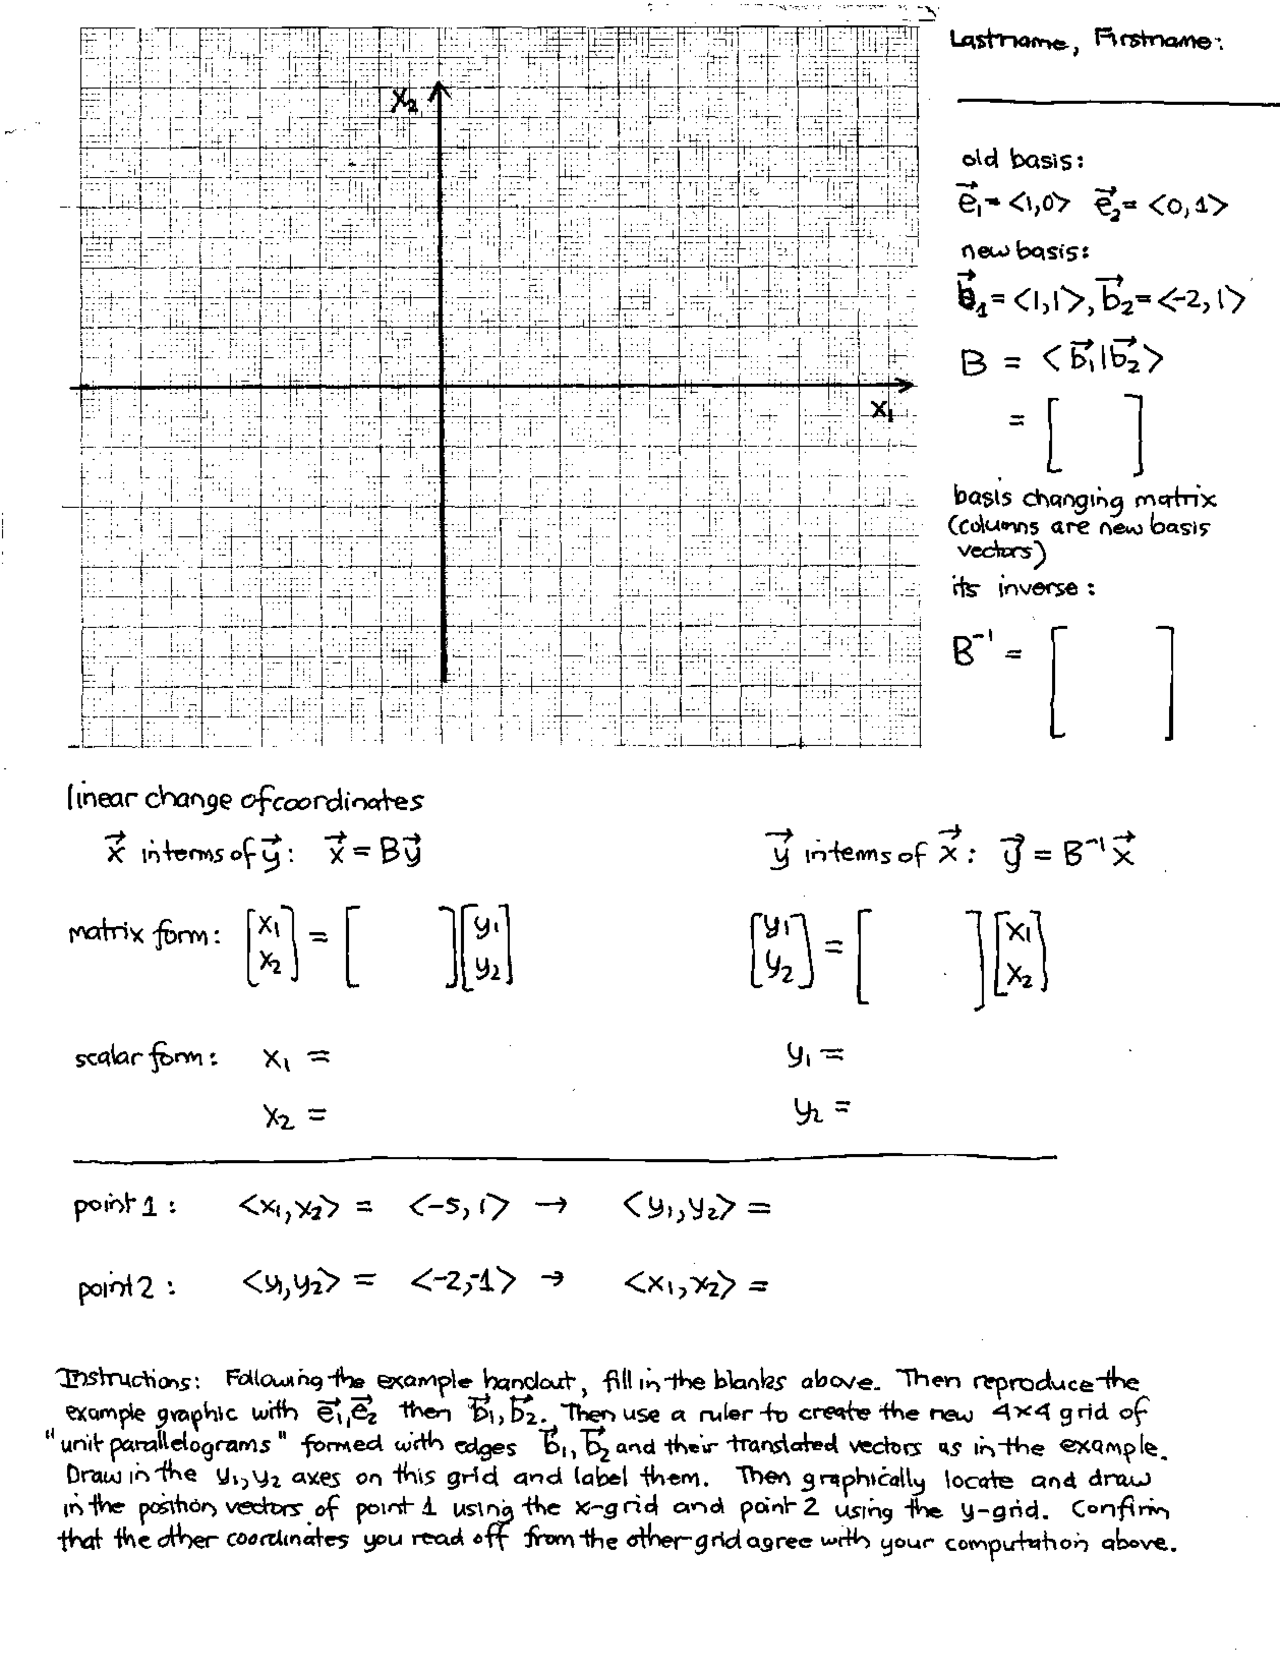 Lastname, Firstname:
x₂
x₁
old basis:
e⃗₁ = <1,0> e⃗₂ = <0,1>
new basis:
b⃗₁ = <1,1>, b⃗₂ = <-2,1>
B = <b⃗₁|b⃗₂>
= [ ]
basis changing matrix
(columns are new basis
vectors)
its inverse:
B⁻¹ = [ ]
linear change of coordinates
x⃗ in terms of y⃗: x⃗ = By⃗
y⃗ in terms of x⃗: y⃗ = B⁻¹x⃗
matrix form: [x₁ x₂] = [ ] [y₁ y₂]
[y₁ y₂] = [ ] [x₁ x₂]
scalar form: x₁ =
y₁ =
x₂ =
y₂ =
point 1: <x₁,x₂> = <-5,1> → <y₁,y₂> =
point 2: <y₁,y₂> = <-2,-1> → <x₁,x₂> =
Instructions: Following the example handout, fill in the blanks above. Then reproduce the
example graphic with e⃗₁,e⃗₂ then b⃗₁,b⃗₂. Then use a ruler to create the new 4x4 grid of
"unit parallelograms" formed with edges b⃗₁,b⃗₂ and their translated vectors as in the example.
Draw in the y₁,y₂ axes on this grid and label them. Then graphically locate and draw
in the position vectors of point 1 using the x-grid and point 2 using the y-grid. Confirm
that the other coordinates you read off from the other grid agree with your computation above.